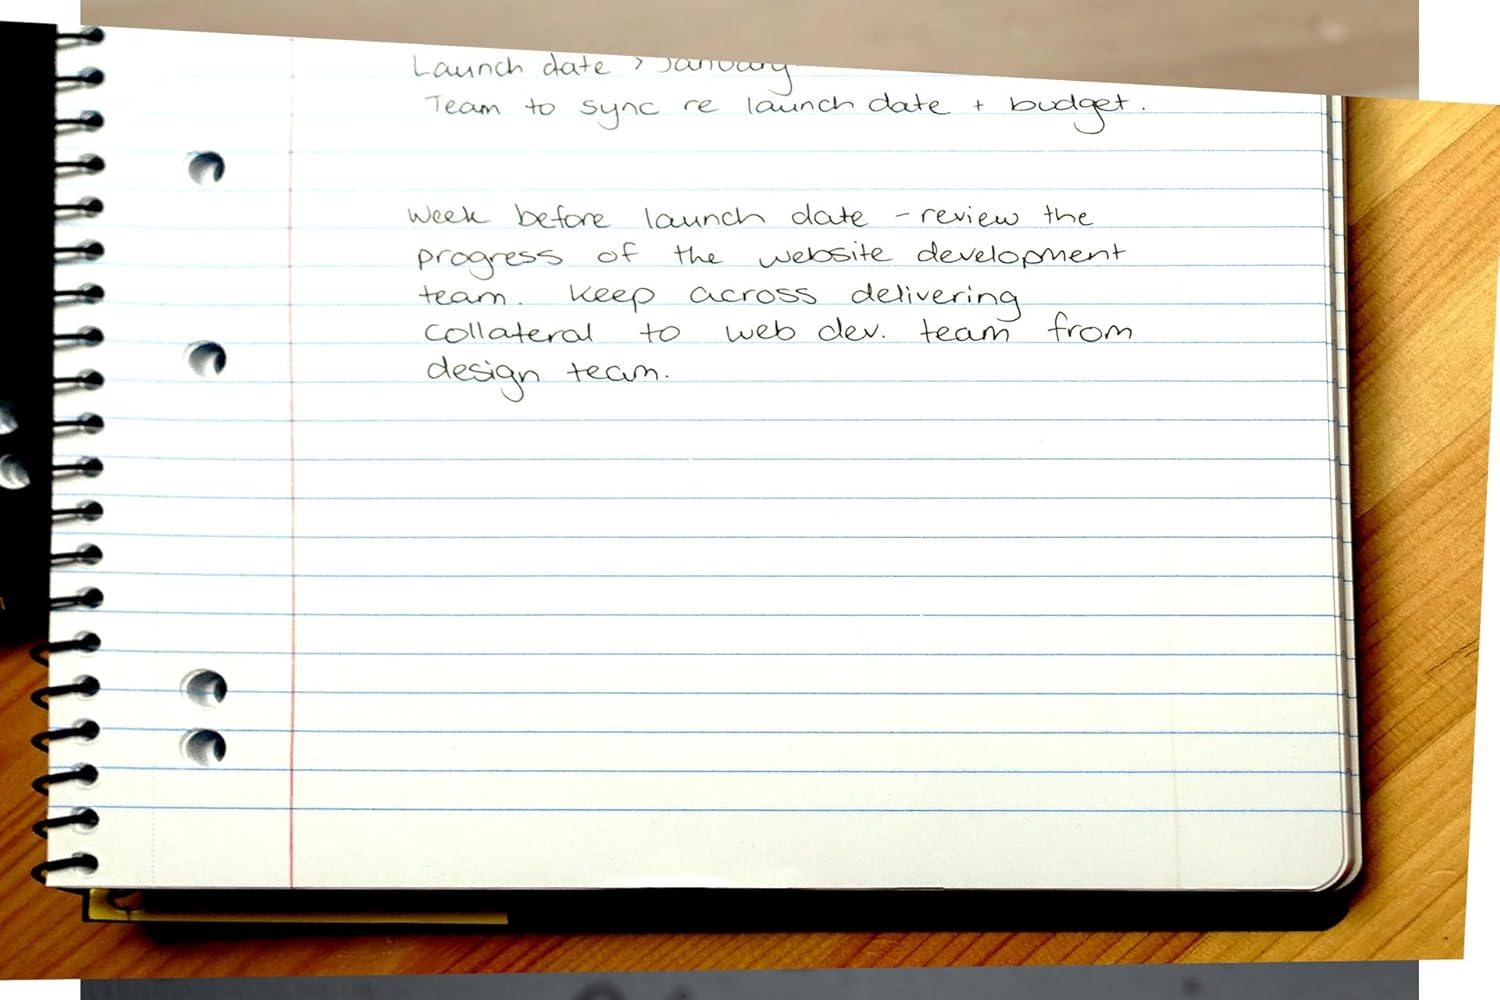 Launch date > January
Team to sync re launch date + budget.
Week before launch date - review the
progress of the website development
team. Keep across delivering
collateral to web dev. team from
design team.